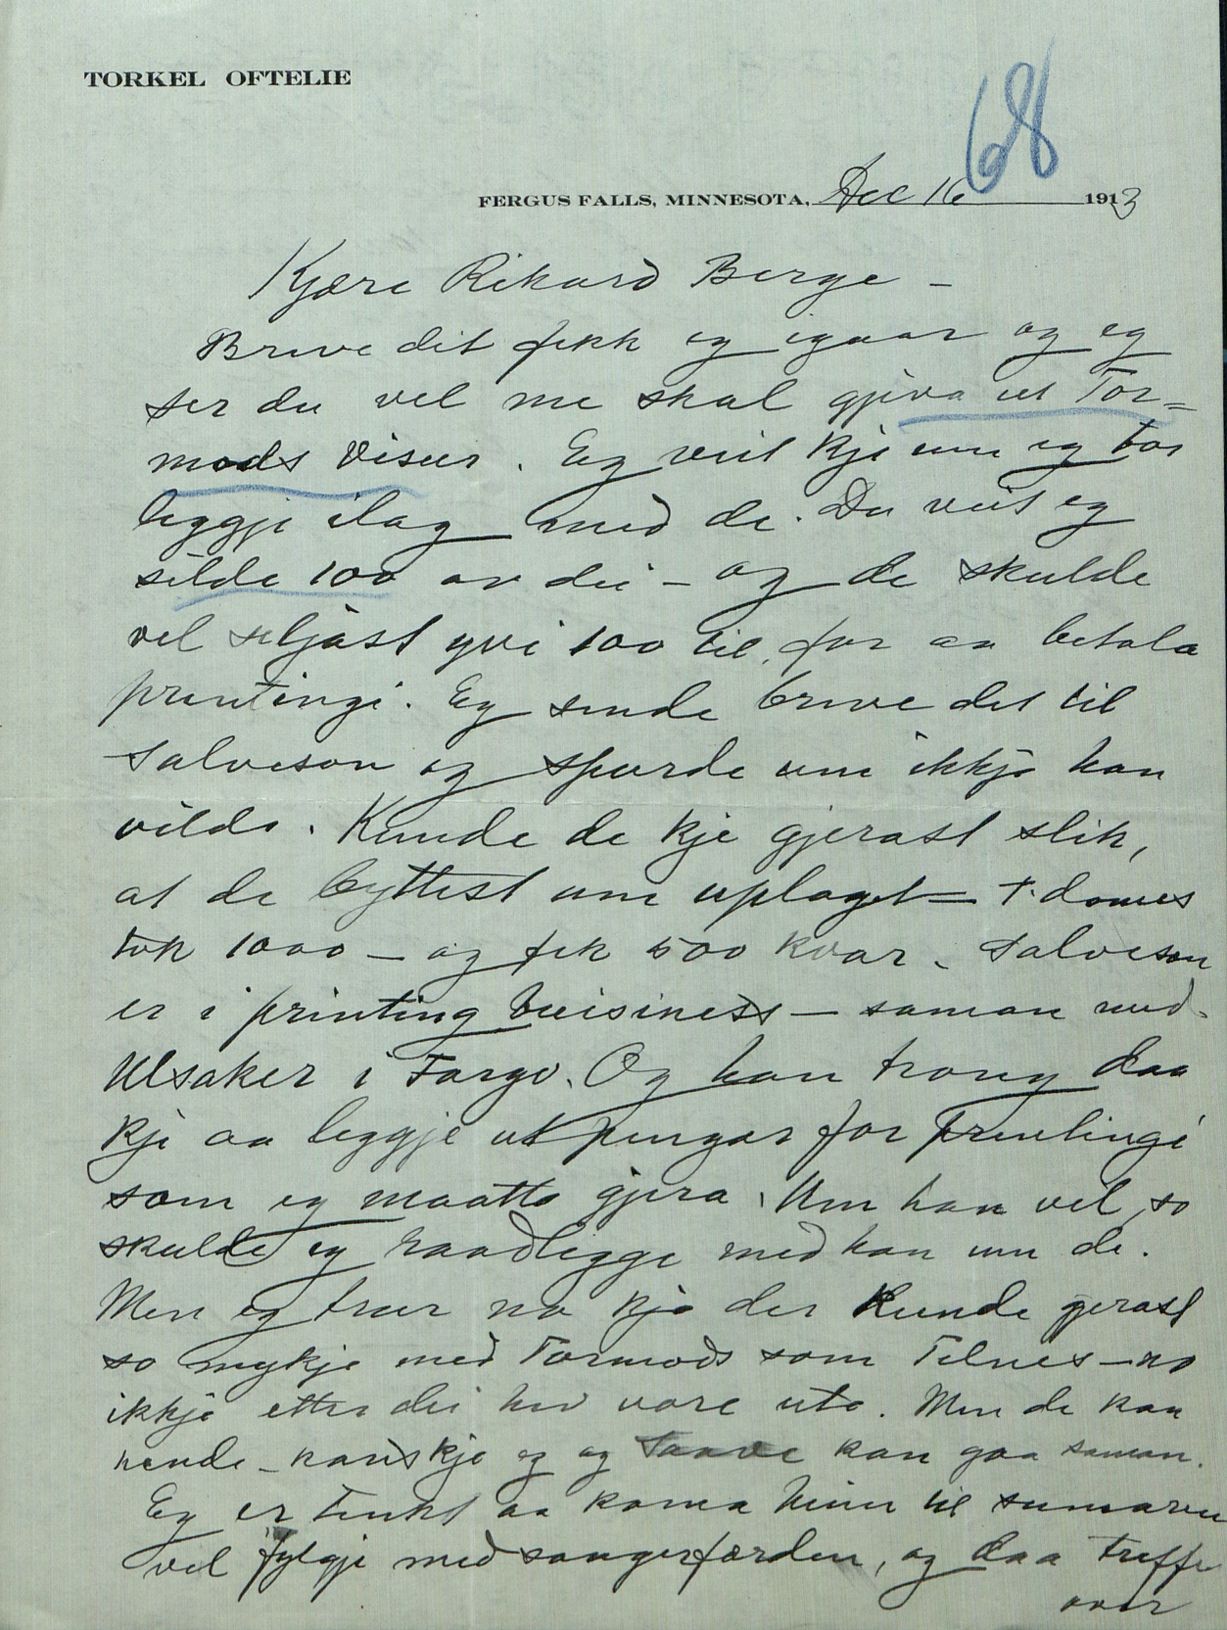 TORKEL OFTELIE
68
FERGUS FALLS, MINNESOTA, Dec 16 1913
Kjære Rikard Berge –
Breve dit fekk eg igaar og eg
ser du vel me skal gjeva ut Tor=
mods Visur. Eg veit kje um eg tor
leggje ilag med de. Du veit eg
selde 100 av dei – og de skulde
vel seljast yvi 100 til for aa betala
printingi. Eg sende breve det til
Salveson og spurde um ikkje han
vilde. Kunde de kje gjerast slik,
at de byttest um uplaget – t. domes
tok 1000 – og fek 500 kvar. Salveson
er i printing buisiness – saman med
Ulsaker i Fargo. Og han trong daa
kje aa leggje ut pengar for printingi
som eg maatte gjera. Um han vel, so
skulde eg raadlegge med han um de.
Men eg trur no kje der kunde gjerast
so mykje med Tormods som Telnes – no
ikkje etter dei hev vore ute. Men de kan
hende – kanskje eg og Taave kan gaa saman.
Eg er tenkt aa koma heim til sumaren
vel fylgje med sangerfærden, og daa treffe
over